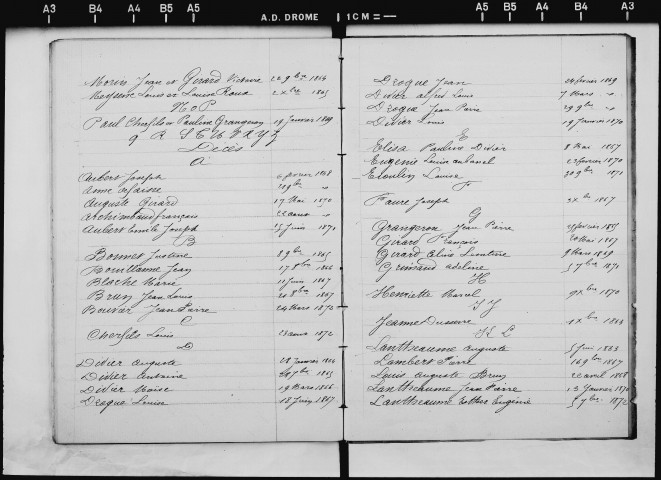 A3 B4 A4 B5 A5 A.D. DROME 1 CM A5 B5 A4 B4 A3
Morin Jean et Gerard Victoire 22 9bre 1864
Meysson Louis et Louise Roux 2 Xbre 1865
N O P
Paul Cherfils et Pauline Grangeron 19 Janvier 1869
Q R S T U V X Y Z
Décès
A
Aubert Joseph 6 février 1868
Anne 20 9bre
Auguste Gerard 17 Mai 1870
Archimbaud françois 22 aout
Aubert Emile Joseph 15 Juin 1871
B
Bonnet Justine 8 9bre 1865
Bouillanne Jean 17 8bre 1866
Blache Marie 11 Juin 1867
Brun Jean Louis 20 8bre 1867
Bouvar Jean Pierre 24 Mars 1872
C
Cherfils Louis 1872
D
Didier Auguste 28 Janvier 1864
Didier Antoine 1865
Didier Moïse 19 Mars 1866
Drogue Louise 18 Juin 1867
Drogue Jean 24 février 1869
Didier Alfred Louis 7 Mars
Drogue Jean Pierre 29 9bre
Didier Louis 19 Janvier 1870
E
Elisa Pauline Didier 8 Mai 1867
Eugenie Louise 22 février 1870
Louise 30 9bre 1871
F
Faure Joseph Xbre 1867
G
Grangeron Jean Pierre février 1865
Girard François 20 Mars 1867
Gerard Leontine 9 Mars 1869
Grimaud Adeline 5 7bre 1871
H
Henriette Morel 9 Xbre 1870
I J
Jeanne 1 Xbre 1864
K L
Lantheaume Auguste 5 Juin 1863
Lambert Pierre 16 9bre 1867
Louis Auguste Brun 22 avril 1868
Lantheaume Jean Pierre 13 Janvier 1870
Lantheaume Esther Eugénie 5 7bre 1872
A3 B4 A4 B5 A5 A5 B5 A4 B4 A3